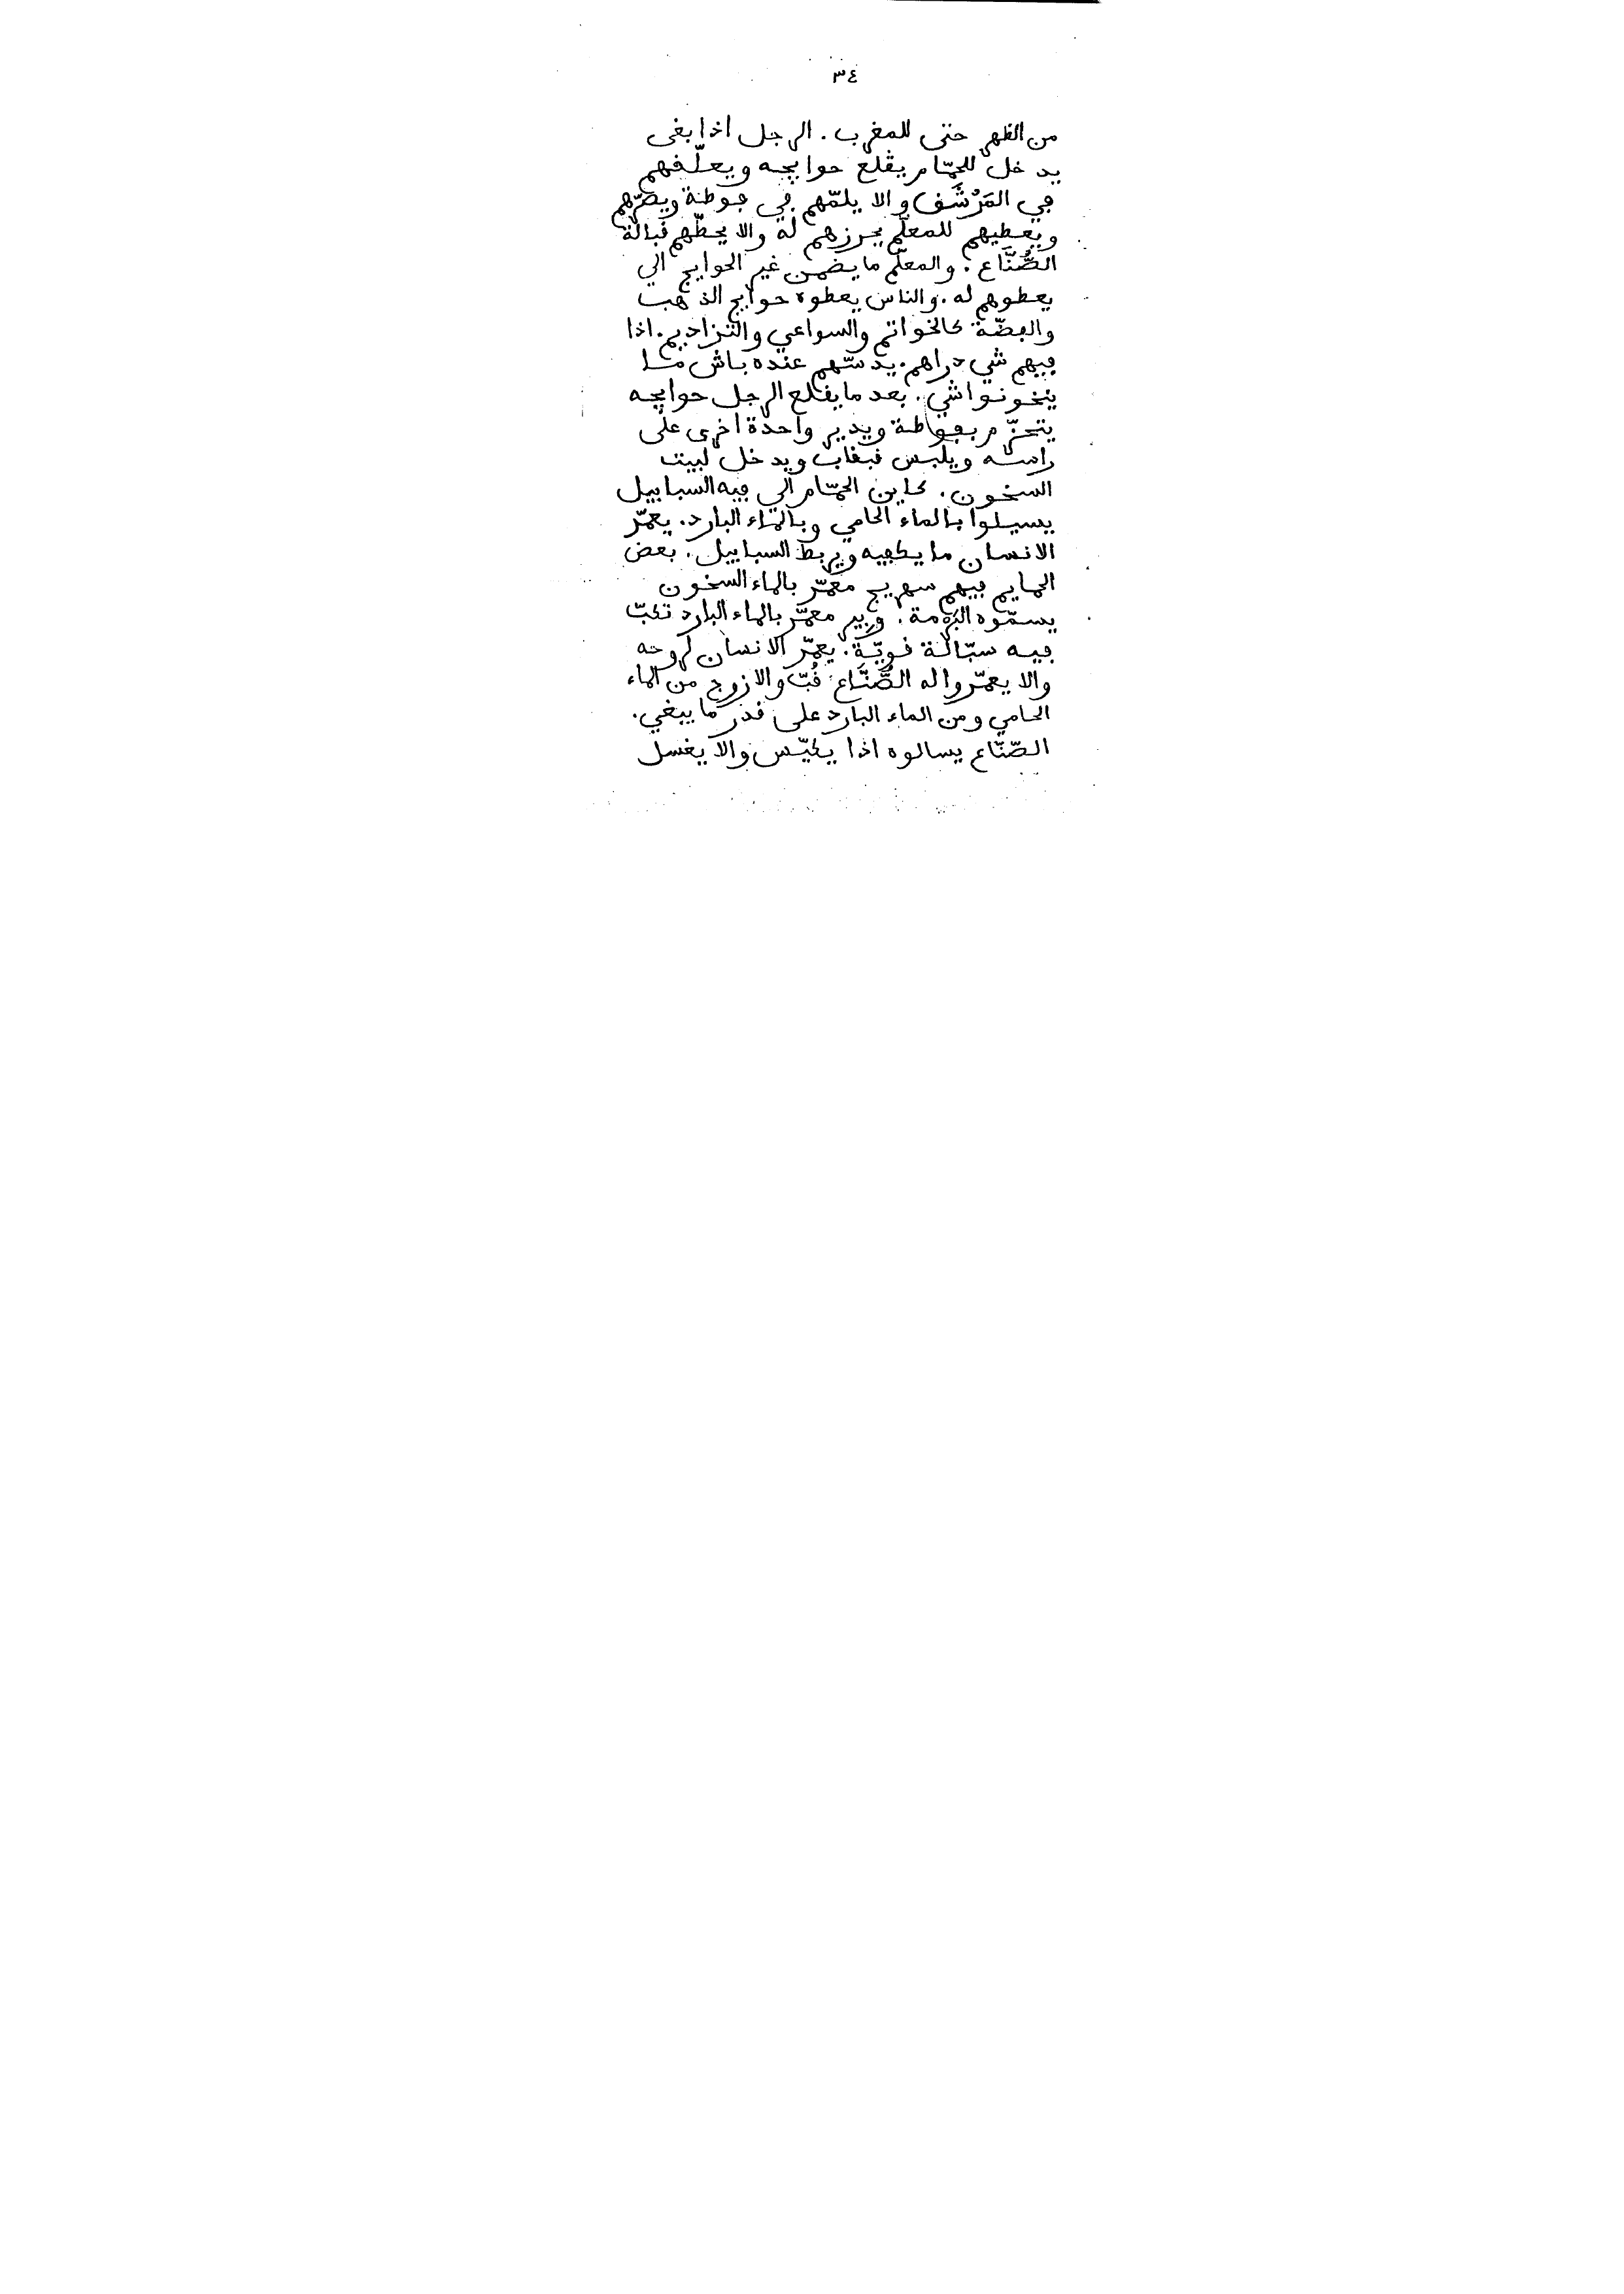 ٣٤
من الظهر حتى للمغرب. الرجل اذا بغى
يدخل للحمّام يڧلع حوايجه ويعلّڧهم
ڢي المَرْشَڧ والا يلمّهم ڢي ڢوطة ويصرّهم
ويعطيهم للمعلّم يحرزهم له والا يحطّهم ڧبالة
الصُّنَّاع. والمعلّم ما يضمن غير الحوايج الي
يعطوهم له. والناس يعطوه حوايج الذهب
والڢضّة كالخواتم والسواعي والتزاديم. اذا
ڢيهم شي دراهم. يدسّهم عنده باش ما
يتخونوا شي. بعد ما يڧلع الرجل حوايجه
يتحزّم بڢوطة ويدير واحدة اخرى على
راسه ويلبس ڧبڧاب ويدخل لبيت
السخون. كاين الحمّام الي ڢيه السبابيل
يسيلوا بالماء الحامي وبالماء البارد. يعمّر
الانسان ما يكڢيه ويربط السبابيل. بعض
الحمايم ڢيهم سهريج معمّر بالماء السخون
يسمّوه البُرْمة. وبير معمّر بالماء البارد تكبّ
ڢيه سبّالة ڧويّة. يعمّر الانسان لروحه
والا يعمّروا له الصُّنَّاع ڧُبّ والا زوج من الماء
الحامي ومن الماء البارد على ڧدر ما يبغي.
الصّنّاع يسالوه اذا يكيّس والا يغسل